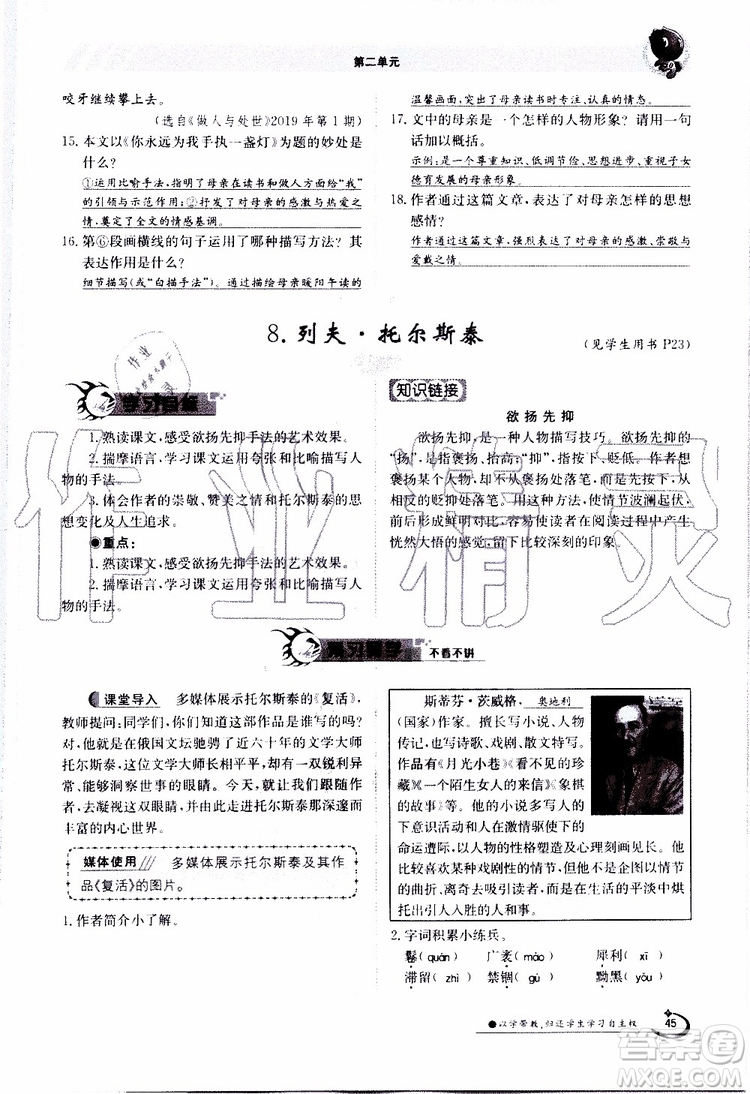 第二单元
咬牙继续攀上去。
(选自《做人与处世》2019年第1期)
15. 本文以《你永远为我手执一盏灯》为题的妙处是
什么?
①运用比喻手法,指明了母亲在读书和做人方面给“我”
的引领与示范作用;②抒发了对母亲的感激与热爱之
情,奠定了全文的情感基调。
16. 第⑥段画横线的句子运用了哪种描写方法?其
表达作用是什么?
细节描写(或“白描手法”)。通过描绘母亲暖阳午读的
温馨画面,突出了母亲读书时专注、认真的情态。
17. 文中的母亲是一个怎样的人物形象?请用一句
话加以概括。
示例:是一个尊重知识、低调节俭、思想开通、重视子女
德育发展的母亲形象。
18. 作者通过这篇文章,表达了对母亲怎样的思想
感情?
作者通过这篇文章,强烈表达了对母亲的感激、崇敬与
爱戴之情。
8. 列夫·托尔斯泰
(见学生用书 P23)
学习目标
1. 熟读课文,感受欲扬先抑手法的艺术效果。
2. 揣摩语言,学习课文运用夸张和比喻描写人
物的手法。
3. 体会作者的崇敬、赞美之情和托尔斯泰的思
想变化及人生追求。
●重点:
1. 熟读课文,感受欲扬先抑手法的艺术效果。
2. 揣摩语言,学习课文运用夸张和比喻描写人
物的手法。
知识链接
欲扬先抑
欲扬先抑,是一种人物描写技巧。欲扬先抑的
“扬”,是指褒扬、抬高;“抑”,指按下、贬低。作者想
褒扬某个人物,却不从褒扬处落笔,而是先从相反
的贬抑处落笔。用这种方法,使情节波澜起伏,
前后形成鲜明对比,容易使读者在阅读过程中产生
恍然大悟的感觉,留下比较深刻的印象。
不看不讲
课堂导入 多媒体展示托尔斯泰的《复活》,
教师提问:同学们,你们知道这部作品是谁写的吗?
是的,他就是在俄国文坛驰骋了近六十年的文学大师
托尔斯泰,文学大师托尔斯泰长相平平,却有一双锐利异
常、能够洞察世事的眼睛。今天,就让我们跟随作者一
起去凝视这双眼睛,并走进托尔斯泰那深邃而
丰富的内心世界。
媒体使用 多媒体展示托尔斯泰及其作
品《复活》的图片。
1. 作者简介小了解。
斯蒂芬·茨威格,奥地利
(国家)作家。擅长写小说、人物
传记,也写诗歌、戏剧、散文特写。
作品有《月光小巷》《看不见的珍
藏》《一个陌生女人的来信》《象棋
的故事》等。他的作品以人物的
下意识活动和人在激情驱使下的
命运遭际,以人物的性格塑造及心理刻画见长。他
比较喜欢某种戏剧性的情节,但不是企图以情节
的曲折、离奇去吸引读者,而是在生活的平淡中烘
托出引人入胜的人和事。
2. 字词积累小练兵。
鬈(quán) 广袤(mào) 犀利(xī)
滞留(zhì) 禁锢(gù) 黝黑(yǒu)
●以学带教,归还学生学习自主权
45
作业精灵
答案圈
MXQE.COM